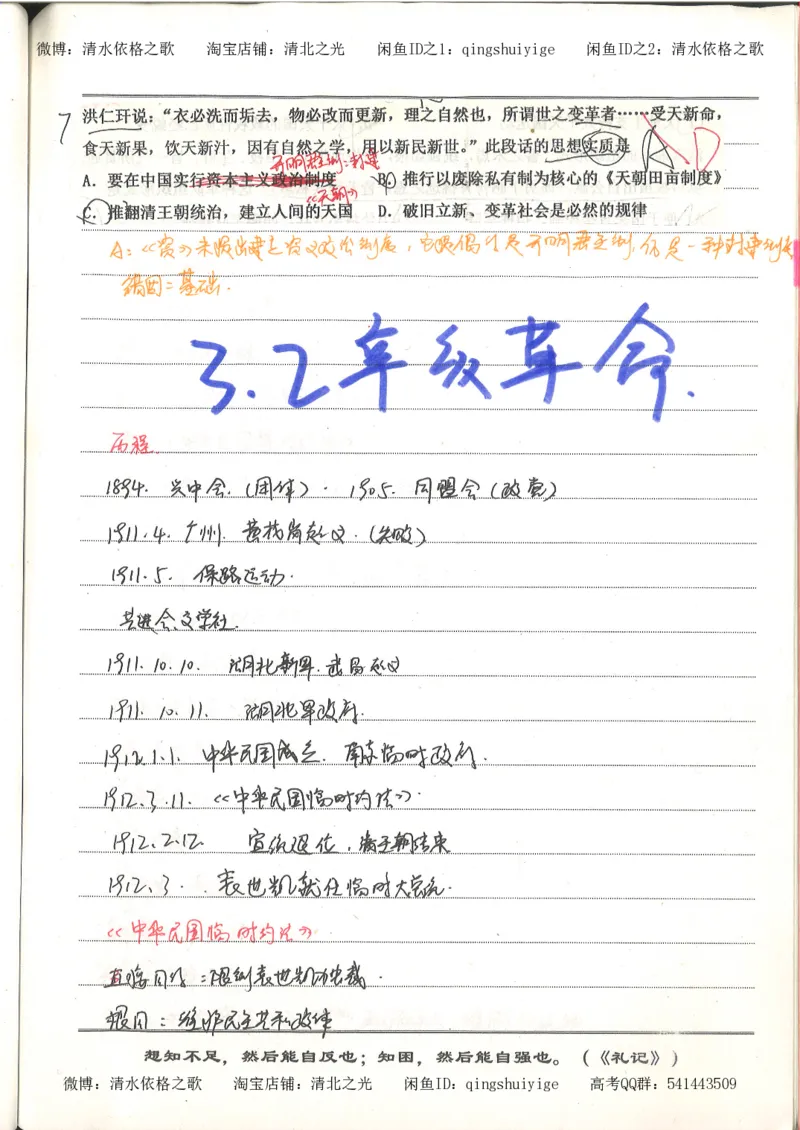 微博：清水依格之歌 淘宝店铺：清北之光 闲鱼ID之1：qingshuiyige 闲鱼ID之2：清水依格之歌
7 洪仁玕说：“衣必洗而垢去，物必改而更新，理之自然也，所谓世之变革者……受天新命，
食天新果，饮天新汁，因有自然之学，用以新民新世。”此段话的思想实质是 A D
开明君主制：封建
A．要在中国实行资本主义政治制度 B．推行以废除私有制为核心的《天朝田亩制度》
《天朝》
C．推翻清王朝统治，建立人间的天国 D．破旧立新、变革社会是必然的规律
A：《资》未提出建立资义政治制度，它提倡的是开明君主制，仍是一种封建制度
错因：基础．
3.2辛亥革命．
历程
1894. 兴中会.（团体）. 1905. 同盟会（政党）
1911.4. 广州. 黄花岗起义.（失败）
1911.5. 保路运动.
共进会文学社.
1911.10.10. 湖北新军.武昌起义
1911.10.11. 湖北军政府.
1912.1.1. 中华民国成立. 南京临时政府.
1912.3.11. 《中华民国临时约法》.
1912.2.12. 宣统退位，清王朝结束
1912.3. 袁世凯就任临时大总统.
《中华民国临时约法》
直接目的：限制袁世凯的独裁.
根目：维护民主共和政体
想知不足，然后能自反也；知困，然后能自强也。（《礼记》）
微博：清水依格之歌 淘宝店铺：清北之光 闲鱼ID：qingshuiyige 高考QQ群：541443509